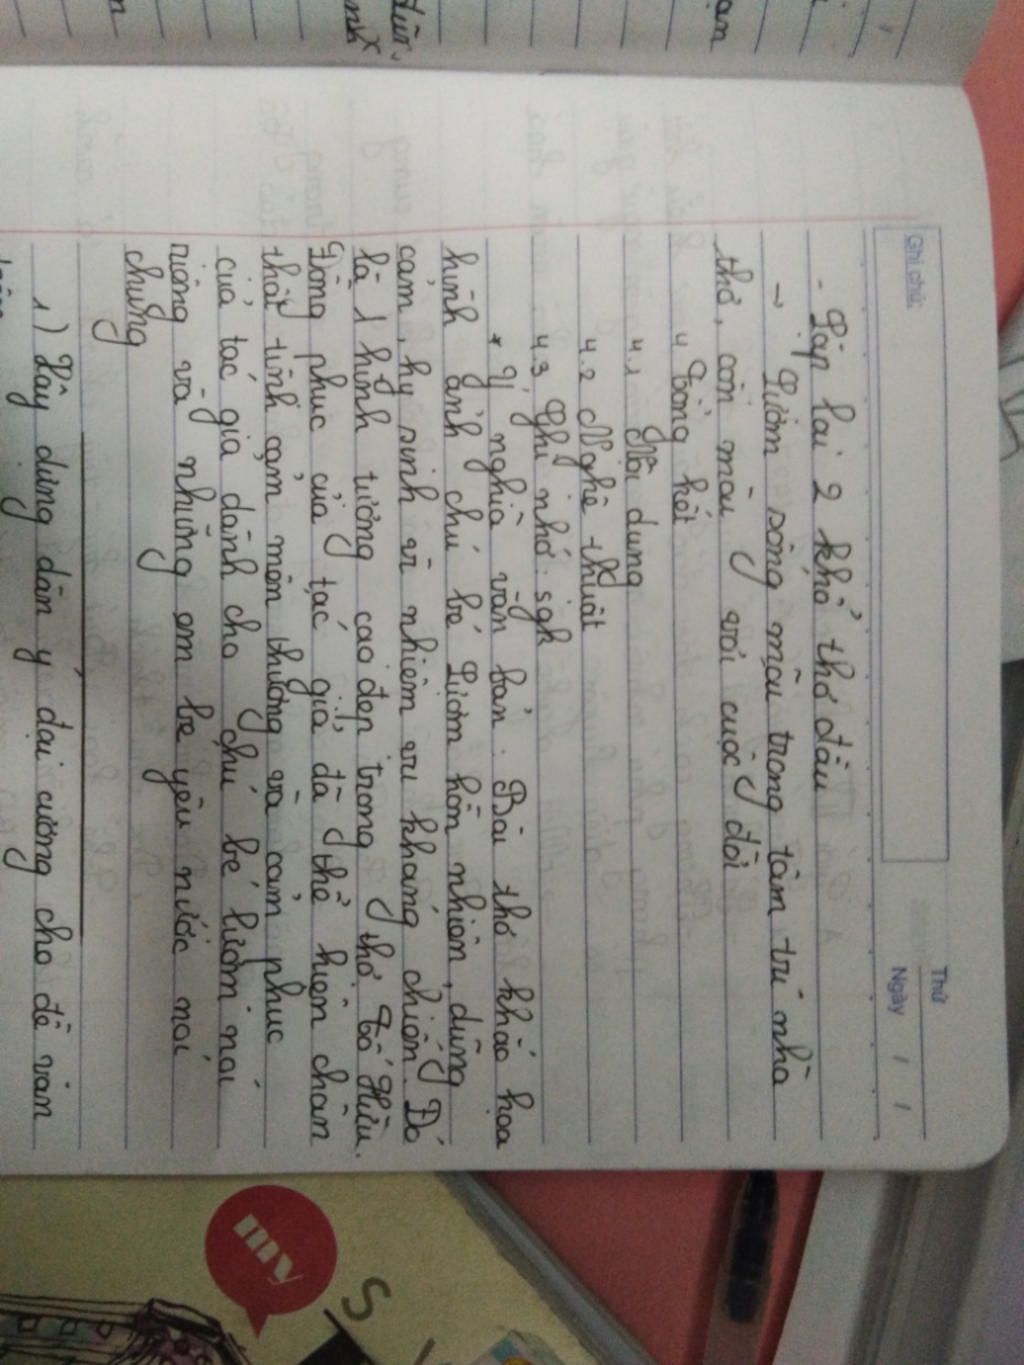 Ghi chú:
Thứ
Ngày / /
- Lặp lại 2 khổ thơ đầu
→ Lượm sống mãu trong tâm trí nhà
thơ, còn mãu với cuộc đời
4 Tổng kết
4.1 Nội dung
4.2 Nghệ thuật
4.3 Ghi nhớ: sgk
* Ý nghĩa văn bản: Bài thơ khắc họa
hình ảnh chú bé Lượm hồn nhiên, dũng
cảm, hy sinh vì nhiệm vụ kháng chiến. Đó
là 1 hình tượng cao đẹp trong thơ Tố Hữu.
Đồng phục của tác giả đã thể hiện chân
thật tình cảm mến thương và cảm phục
của tác giả dành cho chú bé lượm nói
riêng và những em bé yêu nước nói
chung
1) Xây dựng dàn ý đại cương cho đề văn
my
S